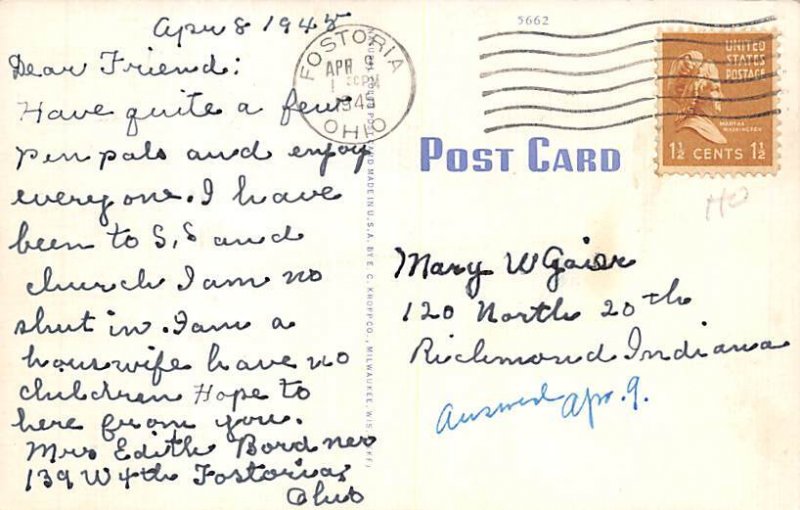 Apr 8 1945
Dear Friend:
Have quite a few
pen pals and enjoy
everyone. I have
been to S, S and
church I am no
shut in. I am a
housewife have no
children Hope to
here from you.
Mrs Edith Bordner
139 W 4th Fostoria,
Ohio
FOSTORIA
APR 9
1945
OHIO
MADE IN U.S.A. BY E. C. KROPP CO., MILWAUKEE, WIS.
5662
UNITED
STATES
POSTAGE
MARTHA
WASHINGTON
1½ CENTS 1½
POST CARD
HO
Mary W Gaier
120 North 20th
Richmond Indiana
Answered Apr. 9.